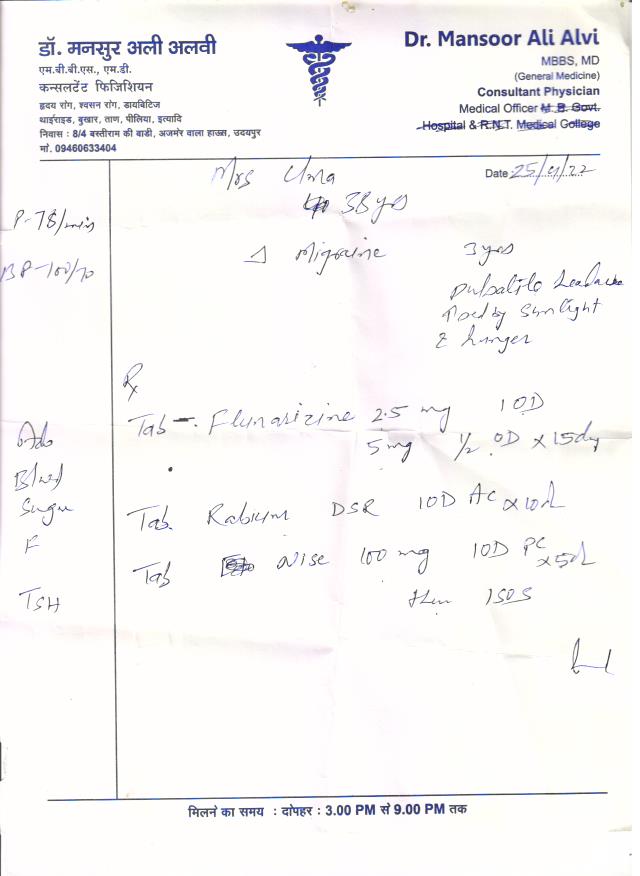 डॉ. मनसुर अली अलवी
एम.बी.बी.एस., एम.डी.
कन्सलटेंट फिजिशियन
हृदय रोग, श्वसन रोग, डायबिटिज
थाईराइड, बुखार, ताण, पीलिया, इत्यादि
निवास : 8/4 बस्तीराम की बाडी, अजमेर वाला हाऊस, उदयपुर
मो. 09460633404
Dr. Mansoor Ali Alvi
MBBS, MD
(General Medicine)
Consultant Physician
Medical Officer M. B. Govt.
Hospital & R.N.T. Medical College
Mrs Uma
Date 25/4/22
38 yrs
P-78/min
BP-100/70
Migraine 3 yrs
Pulsatile headache
by Sunlight
& hunger
Rx
Tab-. Flunarizine 2.5 mg 1OD
5 mg 1/2 OD x 15 day
Blood
Sugar
F
TSH
Tab. Rabium DSR 1OD AC x 10d
Tab Nise 100 mg 1OD PC x 5d
then 1SOS
मिलने का समय : दोपहर : 3.00 PM से 9.00 PM तक